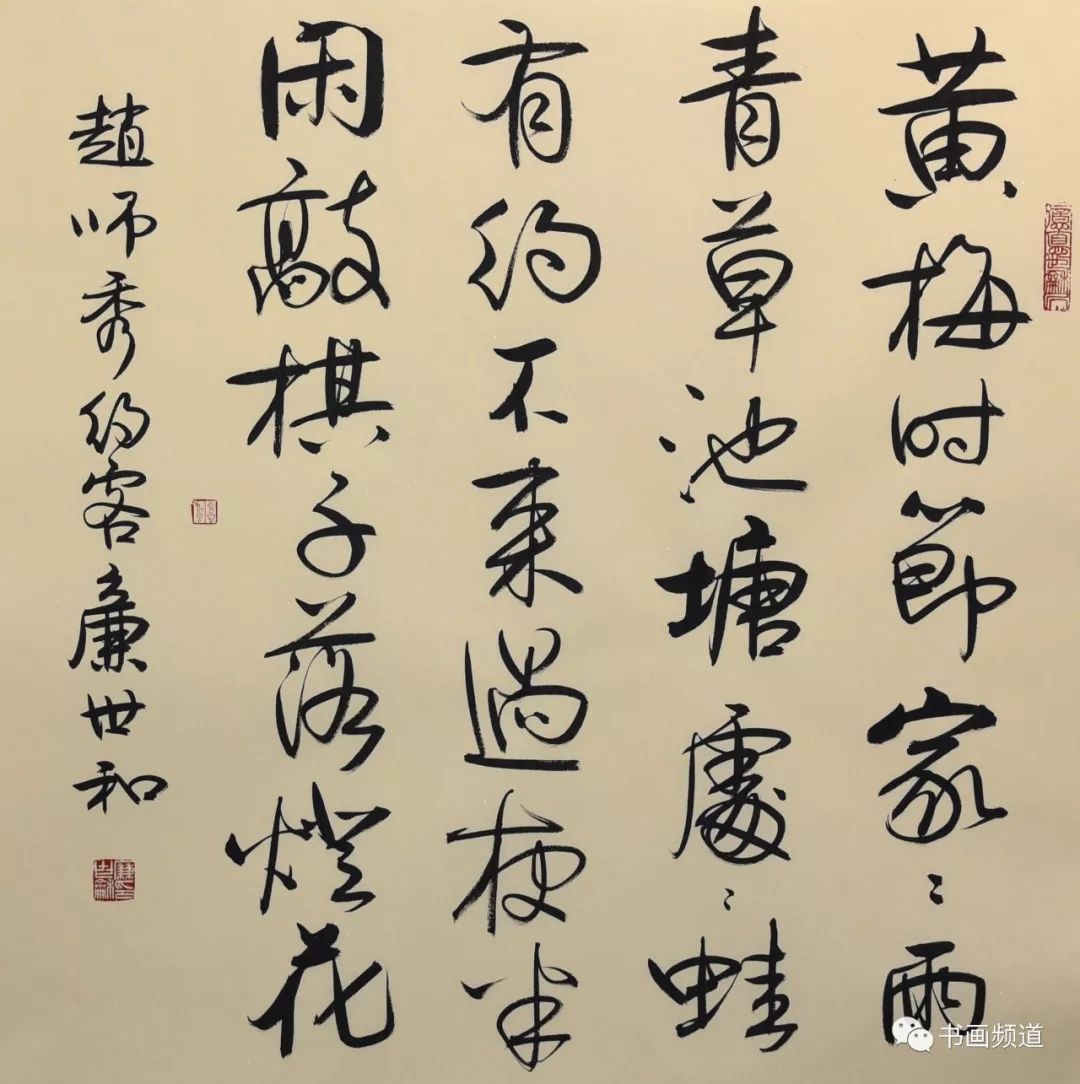 黄梅时節家〻雨
青草池塘處〻蛙
有约不来過夜半
闲敲棋子落燈花
趙师秀约客廉世和
书画频道